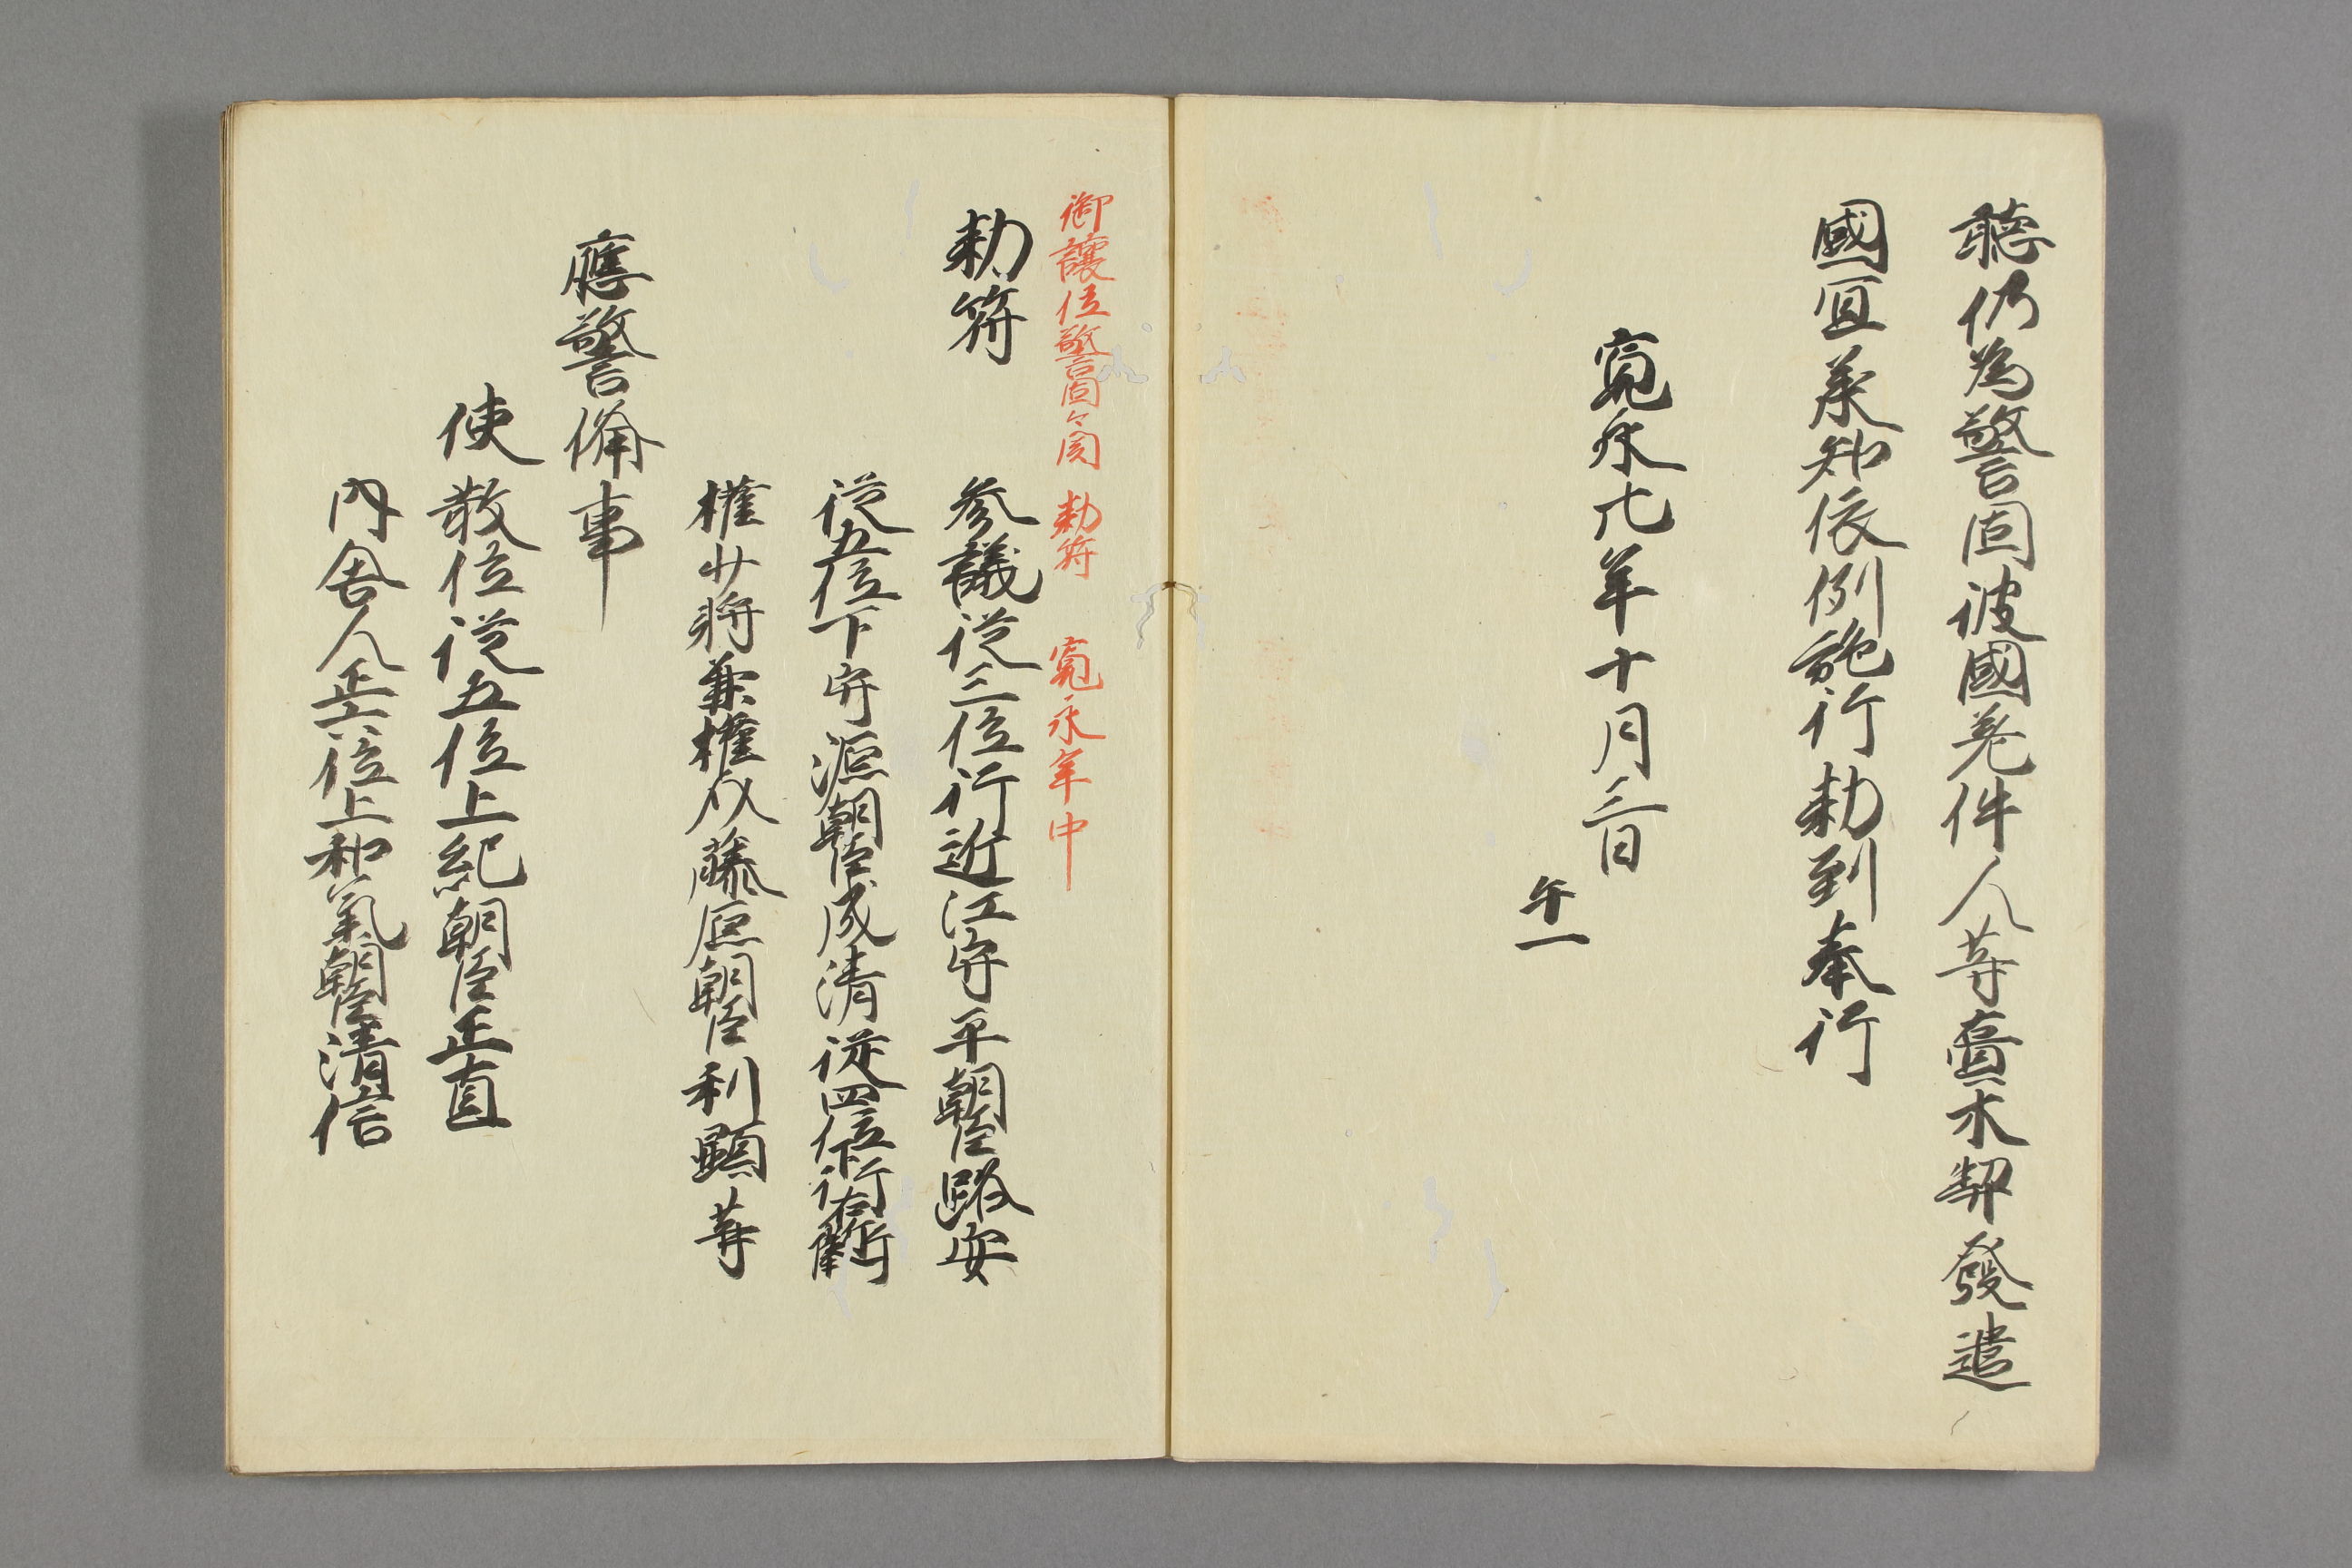 聴仍為警固彼國差件人等賷木契發遣
國宜承知依例施行勅到奉行
寛永廿年十月三日
午一
御譲位警固々関 勅符 寛永年中
勅符 参議従三位行近江守平朝臣路安
従五位下守源朝臣成清従四位下行右近衛
権少将兼権介藤原朝臣利顕等
應警備事
使散位従五位上紀朝臣正直
内舎人正六位上和氣朝臣清信